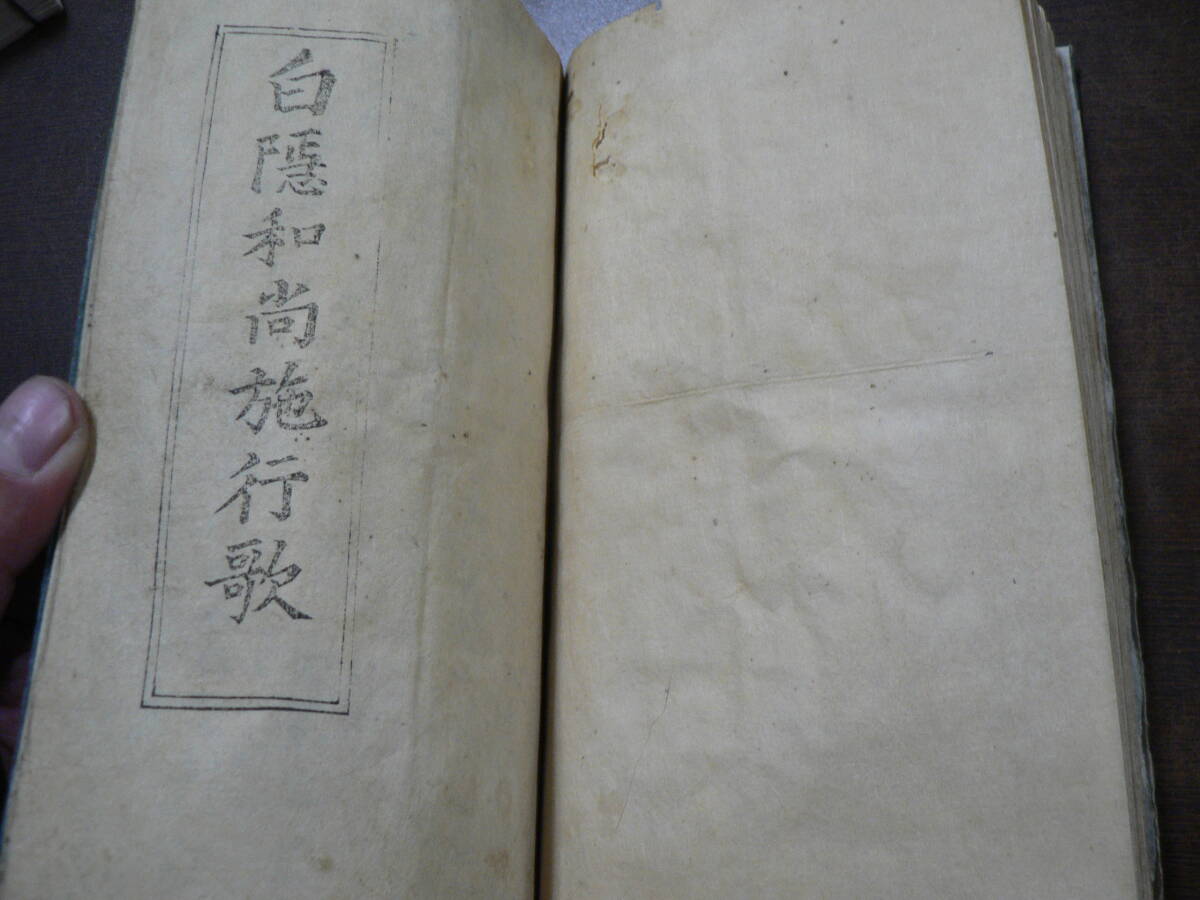 白隱和尚施行歌